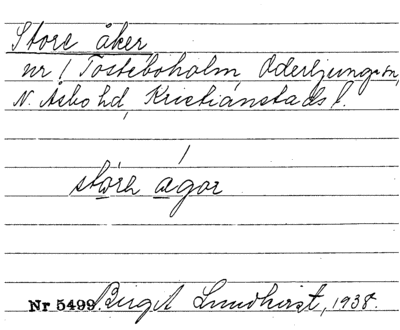 Store åker
nr 1 Tosteboholm, Oderljunga sn,
N. Åsbo hd, Kristianstads l.
störe ågor
Nr 5499. Birgit Lundkvist, 1938.